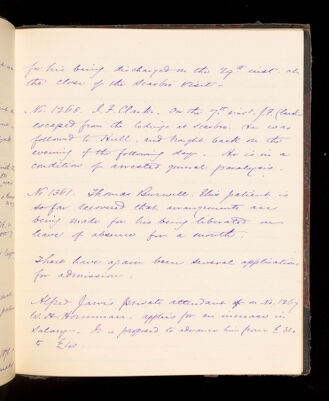 for his being discharged on the 29th inst. at
the close of the Scarbro visit -
No. 1268. J. F. Clark. On the 7th inst. J. F. Clark
escaped from the lodge at Scarbro. He was
followed to Hull. and brought back on the
evening of the following day. He is in a
condition of arrested general paralysis.
No 1361. Thomas This patient is
so far recovered that arrangements are
being made for his being liberated on
leave of absence for a month.
There have again been several applications
for admission.
Alfred Jarvis private attendant on No. 1267
W. H. applies for an increase in
salary. It is proposed to advance him from £
to £